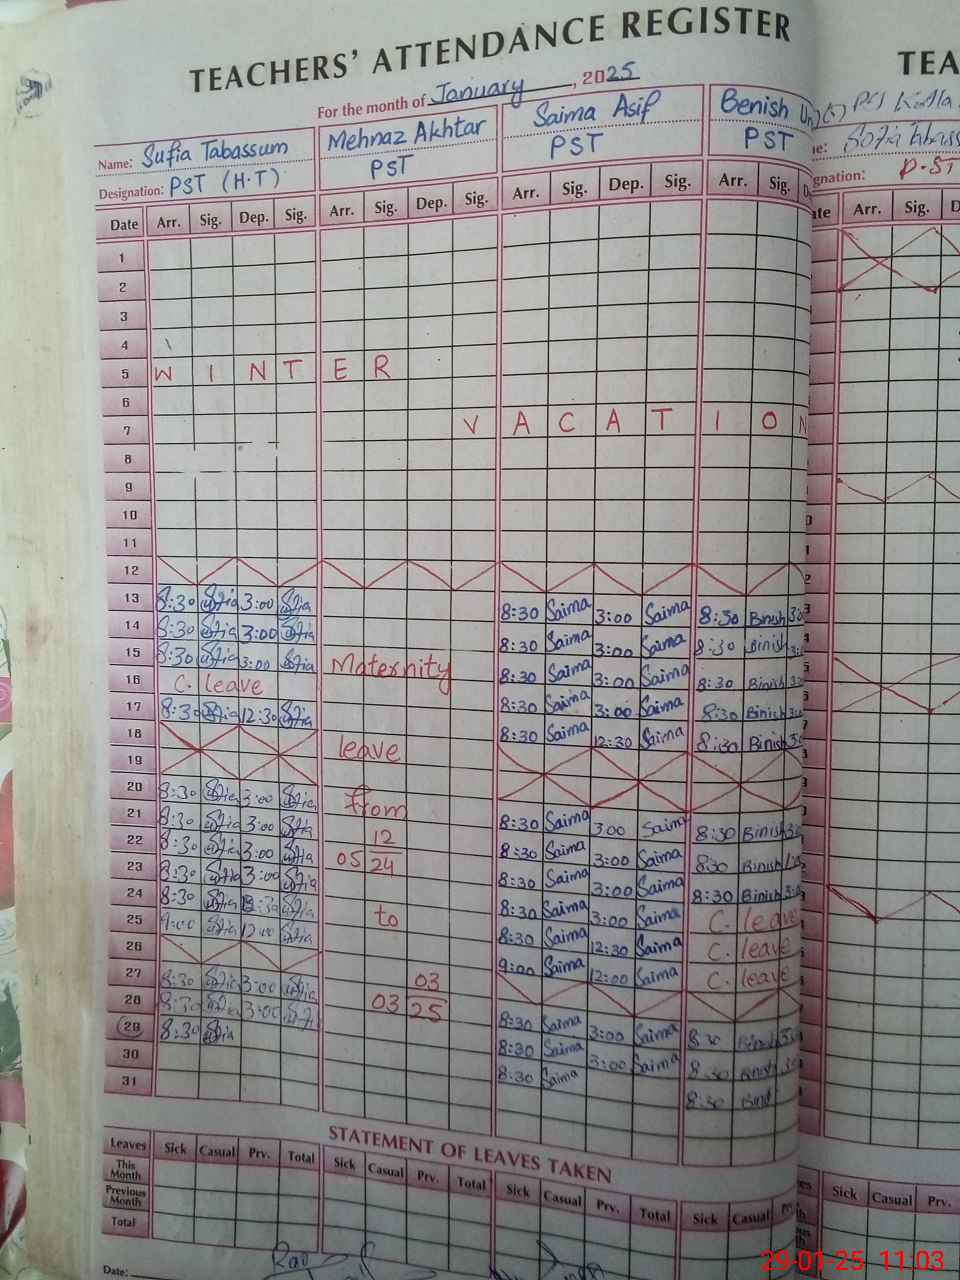 TEACHERS' ATTENDANCE REGISTER
For the month of January, 2025
Name: Sufia Tabassum Mehnaz Akhtar Saima Asif Benish
Designation: PST (H.T) PST PST PST
Date Arr. Sig. Dep. Sig. Arr. Sig. Dep. Sig. Arr. Sig. Dep. Sig. Arr. Sig.
1
2
3
4
5 WINTER
6
7 VACATION
8
9
10
11
12
13 8:30 Sofia 3:00 Sofia 8:30 Saima 3:00 Saima 8:30 Binish
14 8:30 Sofia 3:00 Sofia 8:30 Saima 3:00 Saima 8:30 Binish
15 8:30 Sofia 3:00 Sofia Maternity 8:30 Saima 3:00 Saima 8:30 Binish
16 C. leave 8:30 Saima 3:00 Saima 8:30 Binish
17 8:30 Sofia 12:30 Sofia 8:30 Saima 12:30 Saima 8:30 Binish
18 leave
19
20 8:30 Sofia 3:00 Sofia from 8:30 Saima 3:00 Saima 8:30 Binish
21 8:30 Sofia 3:00 Sofia 12 8:30 Saima 3:00 Saima 8:30 Binish
22 8:30 Sofia 3:00 Sofia 05 24 8:30 Saima 3:00 Saima 8:30 Binish
23 8:30 Sofia 3:00 Sofia 8:30 Saima 3:00 Saima C. leave
24 8:30 Sofia Sofia to 8:30 Saima 12:30 Saima C. leave
25 9:00 Sofia 12:00 Sofia 9:00 Saima 12:00 Saima C. leave
26
27 8:30 Sofia 3:00 Sofia 03 8:30 Saima 3:00 Saima 8:30 Binish
28 8:30 Sofia 3:00 Sofia 03 25 8:30 Saima 3:00 Saima 8:30 Binish
29 8:30 Sofia 8:30 Saima 8:30
30
31
STATEMENT OF LEAVES TAKEN
Leaves Sick Casual Prv. Total Sick Casual Prv. Total Sick Casual Prv. Total Sick Casual
This Month
Previous Month
Total
Date:
TEA
P.ST
Arr. Sig.
Sick Casual Prv.
29-01-25 11:03